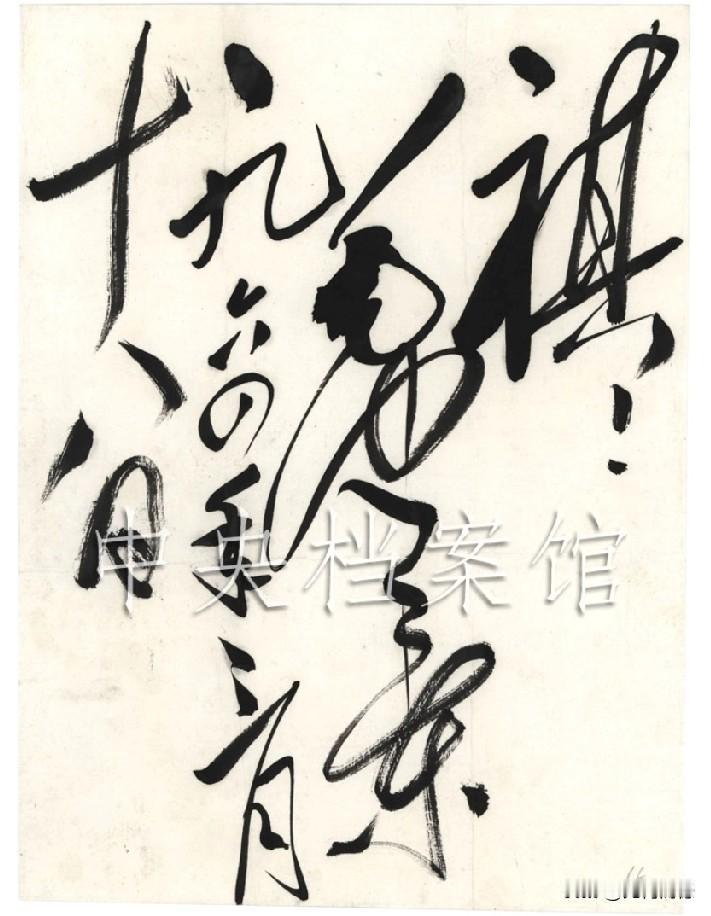 祺！
毛泽东
一九六四年三月
十八日
中央档案馆